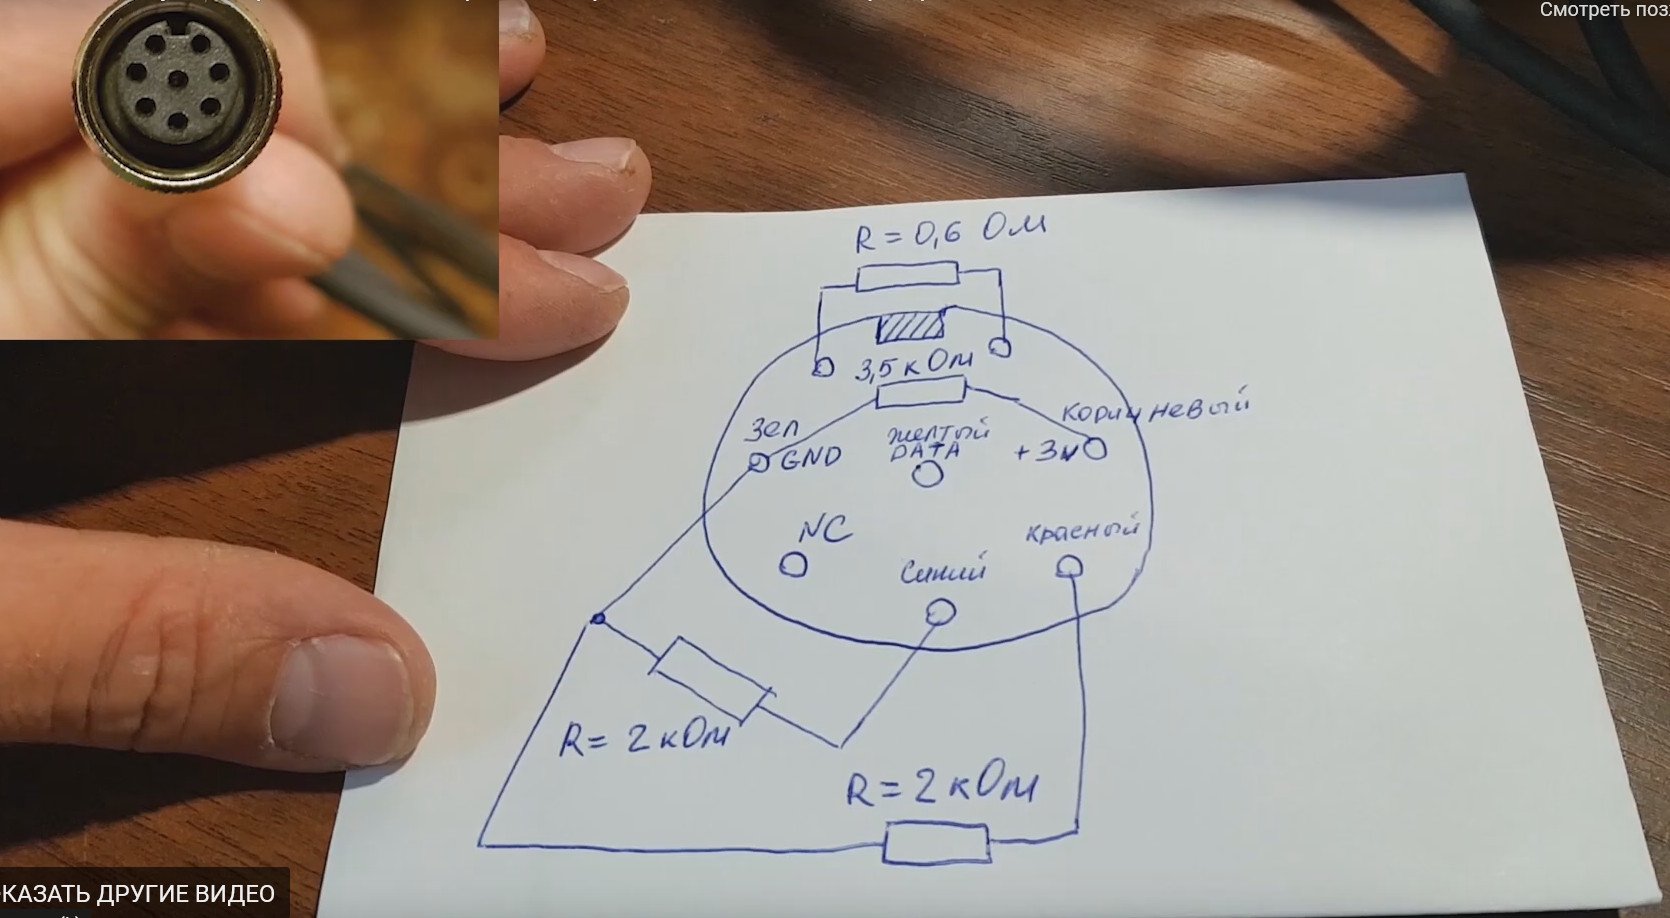 Смотреть поз
R = 0,6 Ом
3,5 кОм
коричневый
Зел
желтый
GND
DATA
+3v
NC
красный
Синий
R = 2 кОм
R = 2 кОм
КАЗАТЬ ДРУГИЕ ВИДЕО